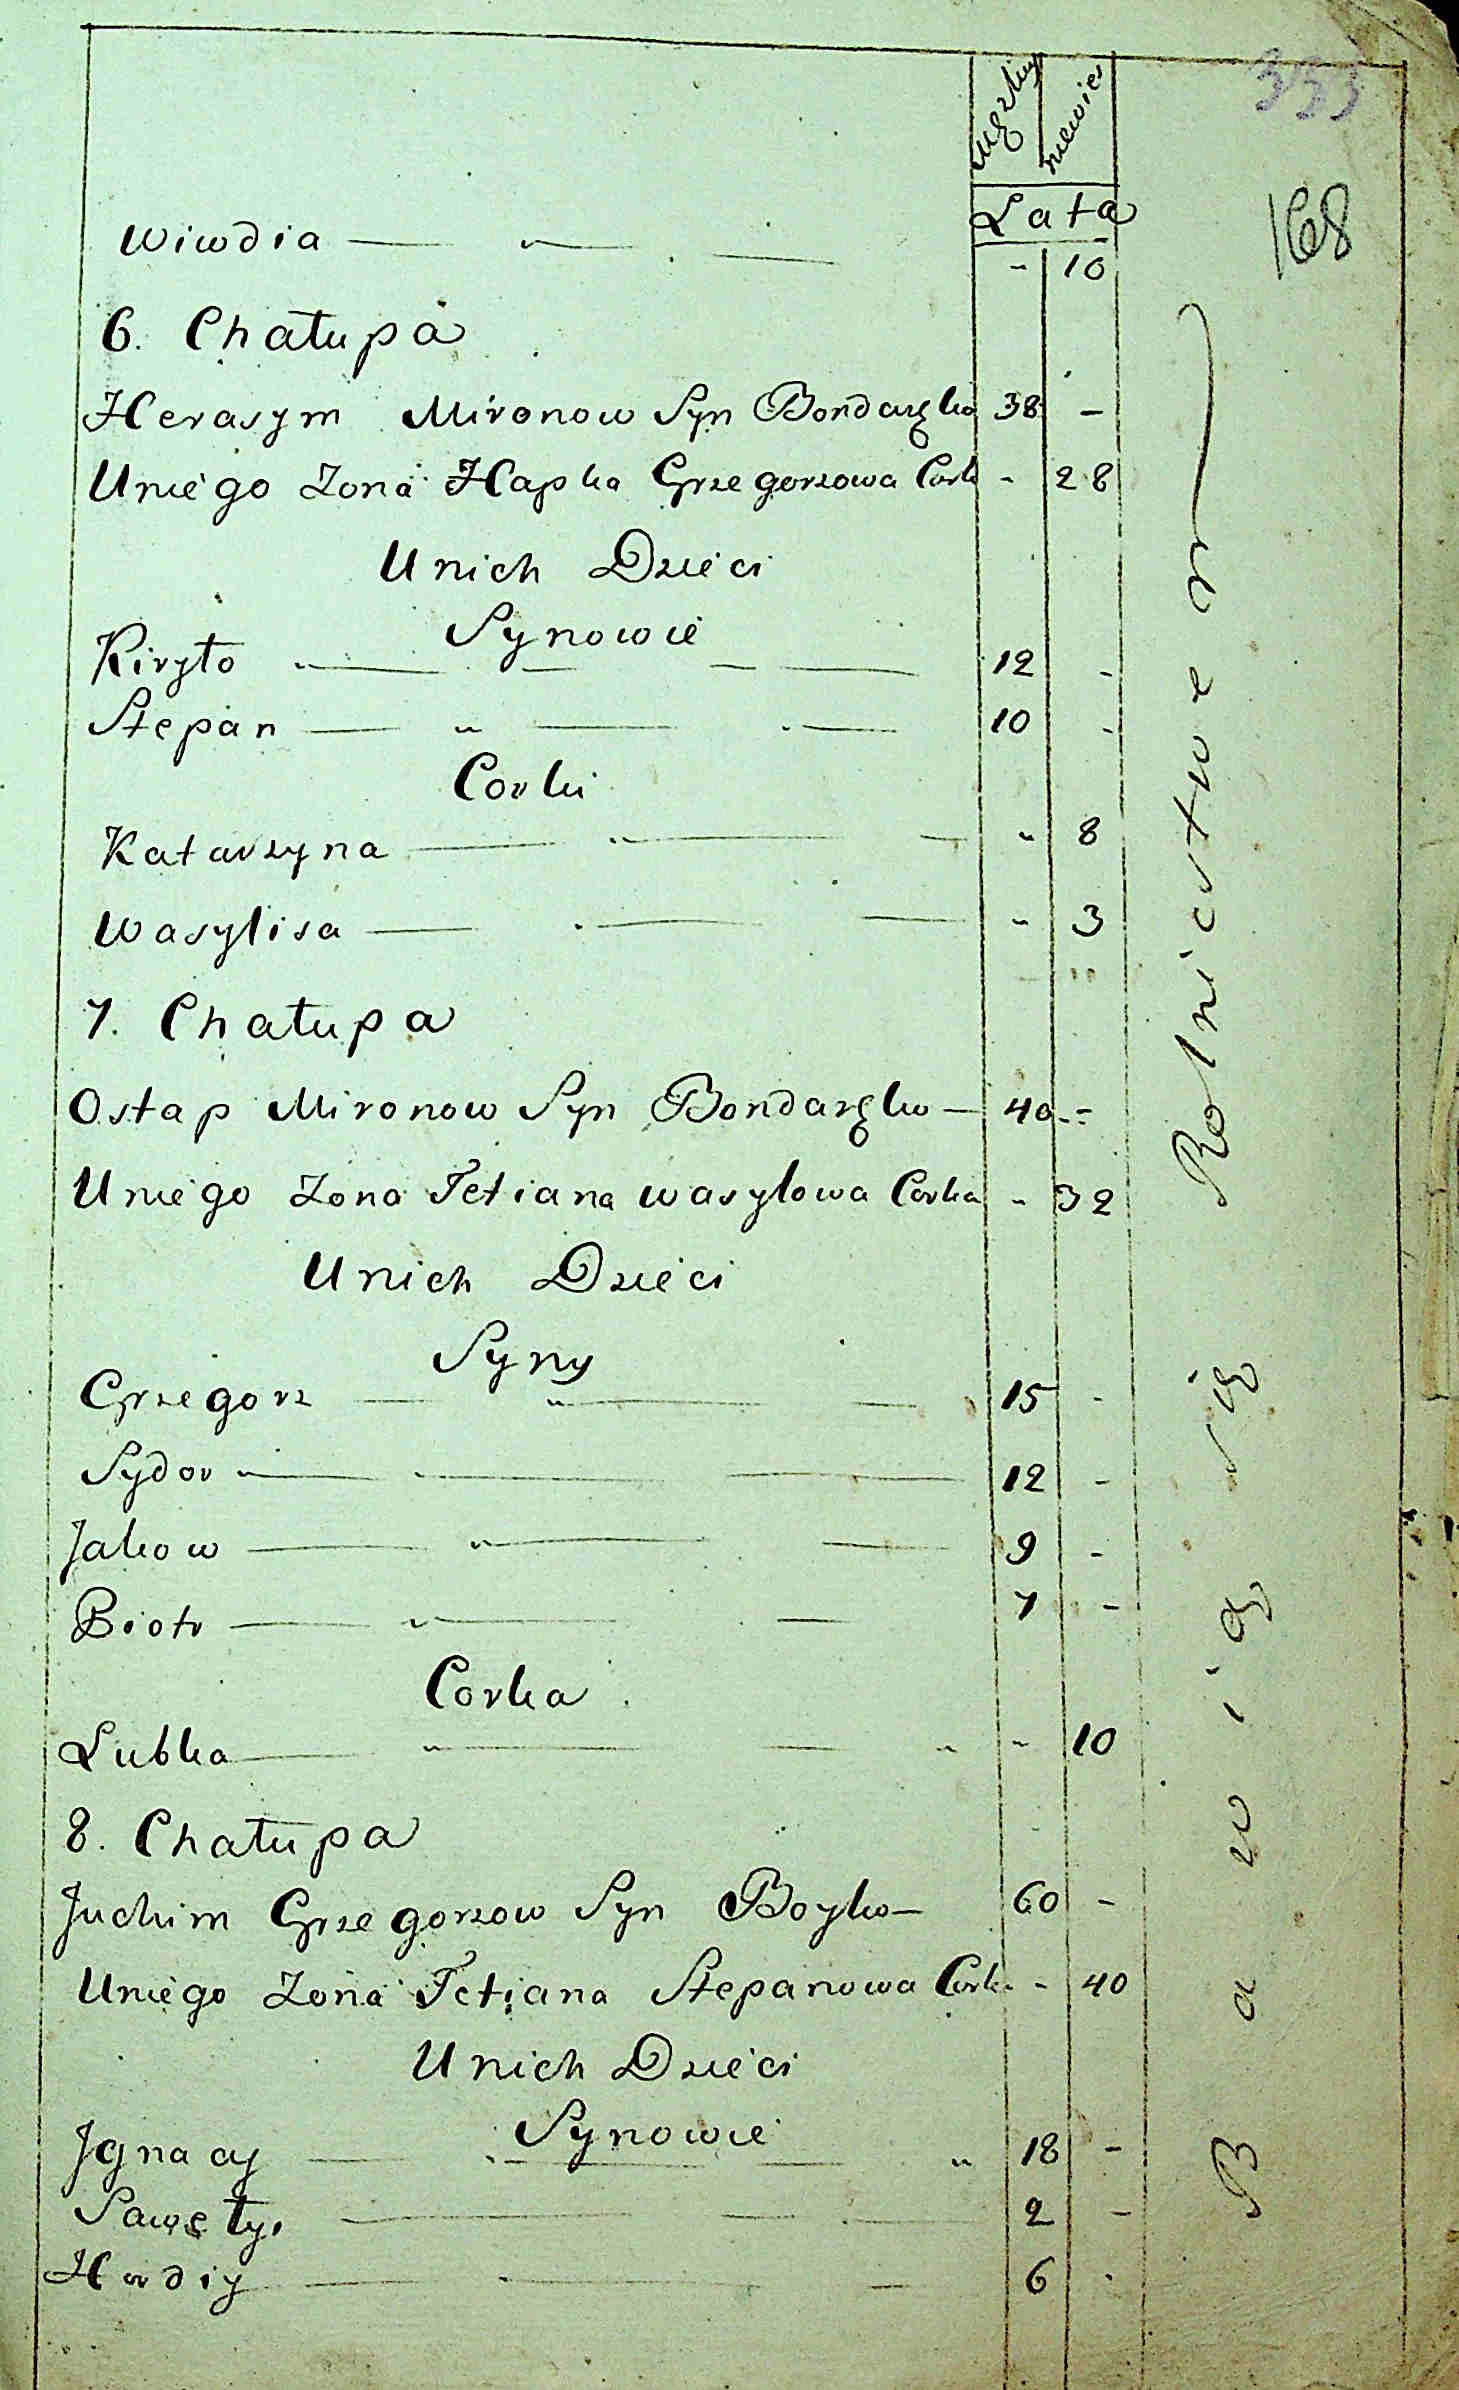 353
168
męzkie niewies
Lata
Wiwdia — „ — - 10
6. Chałupa
Herasym Mironow Syn Bondarzko 38 -
U niego Zona Hapka Grzegorzowa Cork - 28
U nich Dzieci
Synowie
Kiryło — 12 -
Stepan — „ — 10 -
Corki
Katarzyna — „ 8
Wasylisa — „ 3
7. Chałupa
Ostap Mironow Syn Bondarzko — 40 -
U niego Zona Tetiana Wasylowa Corka - 32
U nich Dzieci
Syny
Grzegorz — „ — 15 -
Sydor — 12 -
Jakow — „ — 9 -
Piotr — „ — 7 -
Corka
Lubka — „ — „ - 10
8. Chałupa
Juchim Grzegorzow Syn Boyko — 60 -
U niego Zona Tetiana Stepanowa Cork - 40
U nich Dzieci
Synowie
Jgnacy — „ 18 -
Sawęły — 2 -
Hordiy — 6 -
Bawią się Rolnictwem